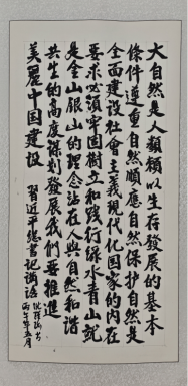 大自然是人類賴以生存發展的基本
條件遵重自然順應自然保護自然是
全面建設社會主義現代化國家的内在
要求必須牢固樹立和践行綠水青山就
是金山銀山的理念站在人與自然和諧
共生的高度謀划發展我們要推進
美麗中国建設 習近平總書記講話
丙午年五月